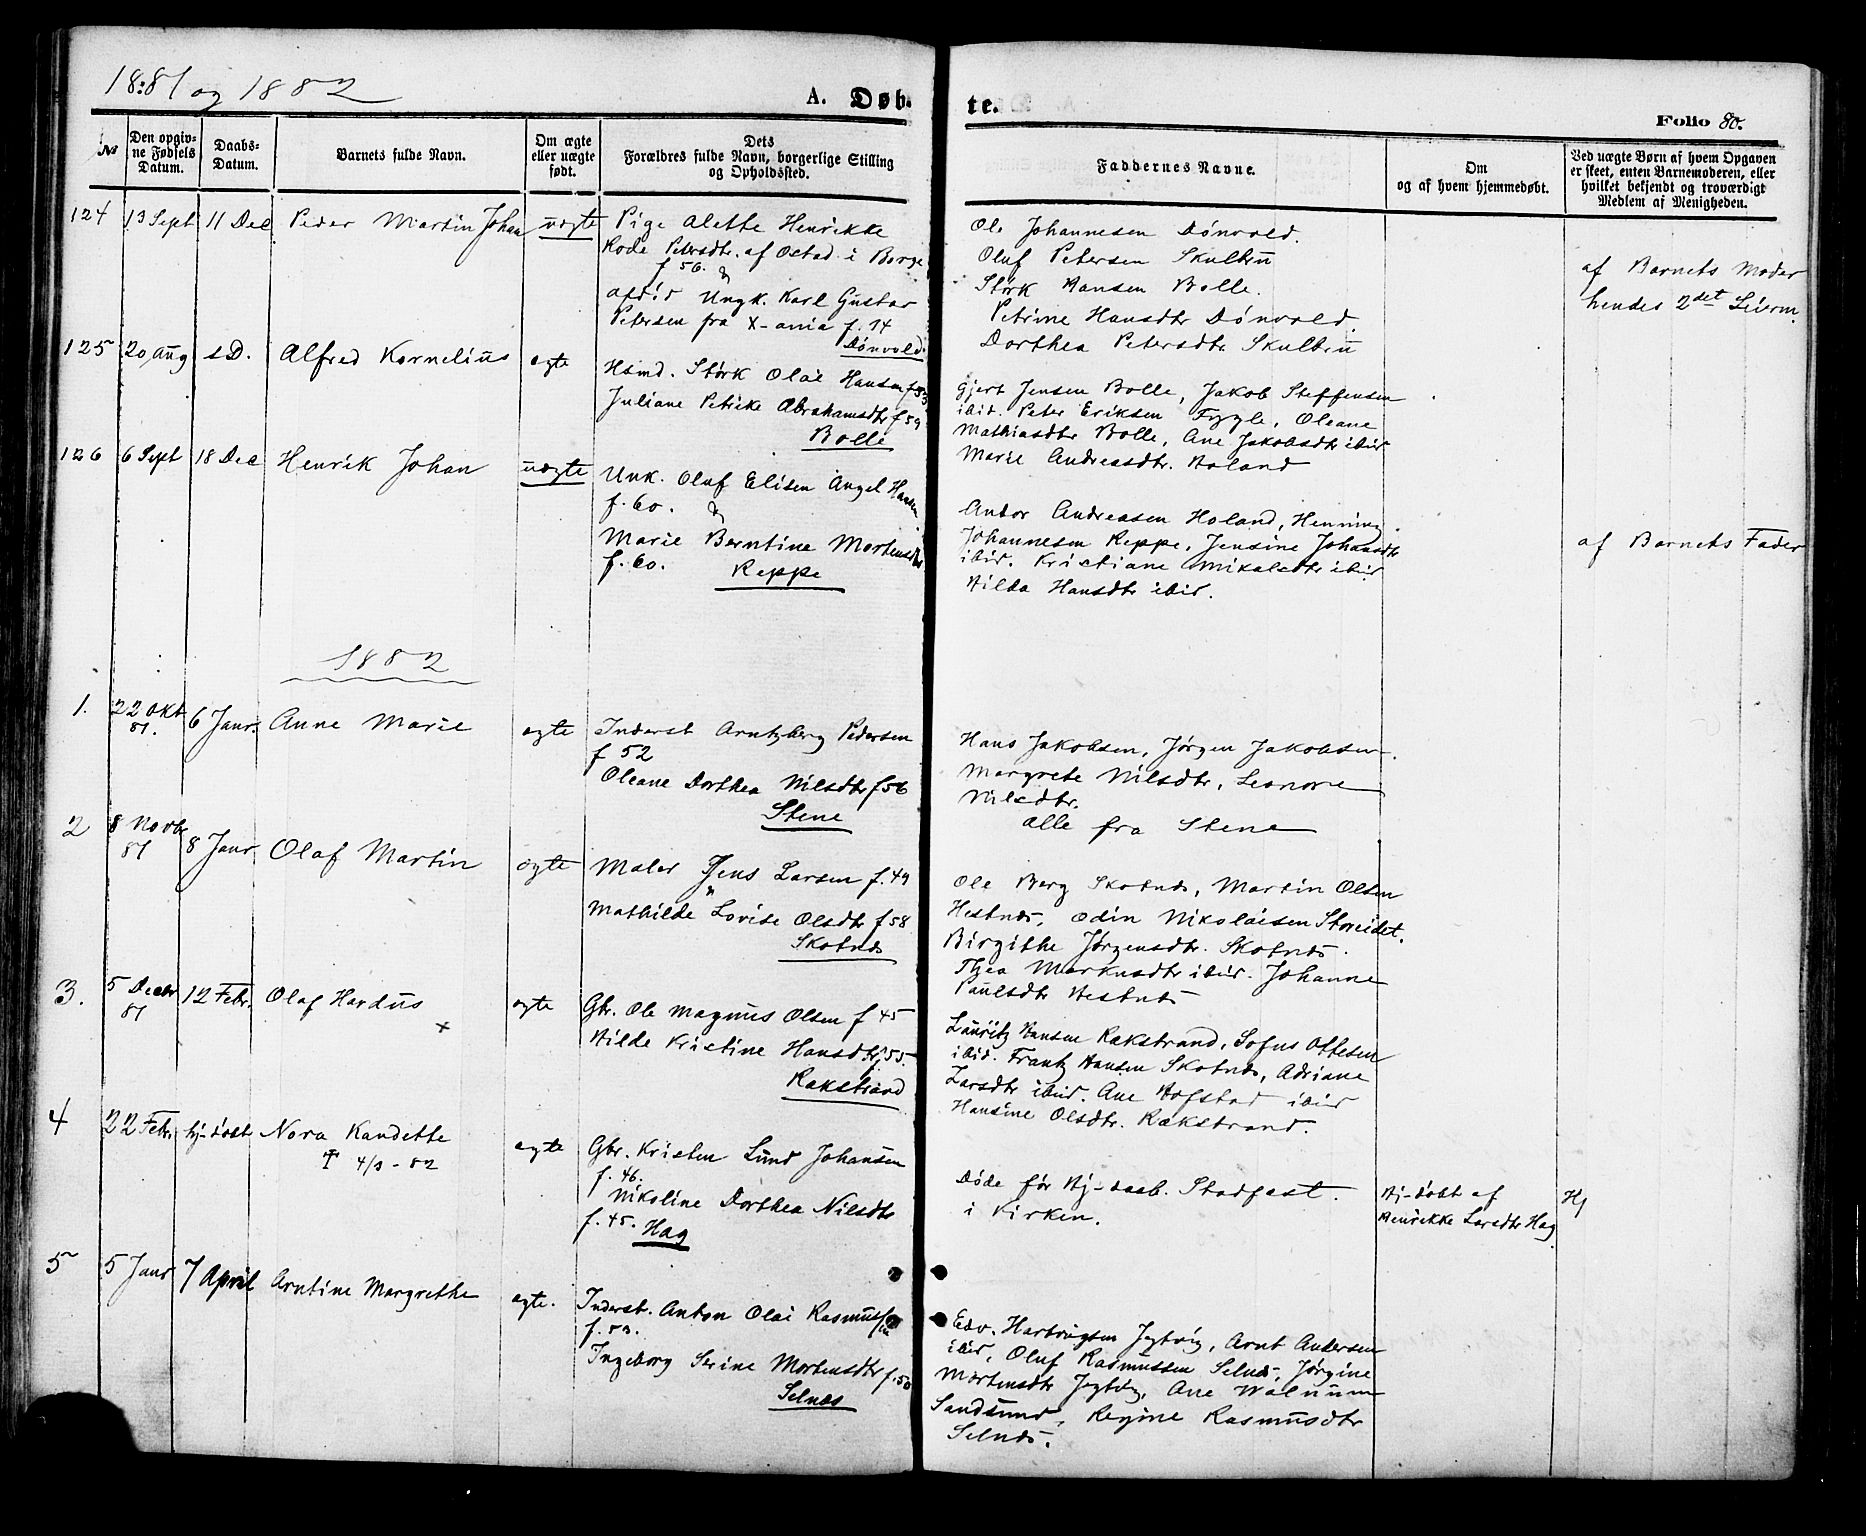 18:81 og 1882
A. Døb-
te.
Folio 80.
№
Den opgiv-
ne Fødsels
Datum.
Daabs-
Datum.
Barnets fulde Navn.
Om ægte
eller uægte
født.
Dets
Forældres fulde Navn, borgerlige Stilling
og Opholdssted.
Faddernes Navne.
Om
og af hvem hjemmedøbt.
Ved uægte Børn af hvem Opgaven
er skeet, enten Barnemoderen, eller
hvilket bekjendt og troværdigt
Medlem af Menigheden.
124 13 Sept 11 Dec Peder Martin Johan uægte
Pige Alette Henrikke
Rode Petersdtr. af Ostad i Borge
f 56. &
Ungk. Karl Gustav
Petersen fra X-ania f. 14
Dønvold
Ole Johannesen Dønvold.
Oluf Petersen Skulbru
Størk Hansen Bolle.
Petrine Hansdtr Dønvold.
Dorthea Petersdtr Skulbru
af Barnets Moder
hendes 2det Leierm.
125 20 Aug s.D. Alfred Kornelius ægte
Hsmd. Størk Olai Hansen f 53
Juliane Petrike Abrahamsdtr f 59
Bolle
Gjert Jensen Bolle, Jakob Steffensen
ibid. Peter Eriksen Fygle, Oleane
Mathiasdtr Bolle, Ane Jakobsdtr ibid
Marie Andreasdtr. Holand
126 6 Sept 18 Dec Henrik Johan uægte
Unk. Oluf Elisen Angel Hansen
f. 60. &
Marie Berntine Mortensdtr
f. 60. Reppe
Andor Andreasen Holand, Henning
Johannesen Reppe, Jensine Johansdtr
ibid. Kristiane Mikalsdtr ibid
Hilda Hansdtr ibid.
af Barnets Fader
1882
1. 22 Okt 81. 6 Janr. Anne Marie ægte
Inderst Arntzberg Pedersen
f 52
Oleane Dorthea Nilsdtr f 56
Stene
Hans Jakobsen, Jørgen Jakobsen
Margrete Nilsdtr, Leonore
Nilsdtr.
alle fra Stene
2 8 Novbr 81 8 Janr Olaf Martin ægte
Maler Jens Larsen f. 49
Mathilde Lovise Olsdtr f 58
Skotnæs
Ole Berg Skotnæs, Martin Olsen
Hestnæs, Odin Nikolaisen Storeidet.
Birgithe Jørgensdtr. Skotnæs.
Thea Markusdtr ibid. Johanne
Paulsdtr Hestnæs
3. 5 Decbr 81 12 Febr. Olaf Hardus ægte
x
Gbr. Ole Magnus Olsen f 45
Hilde Kristine Hansdtr f. 55.
Rakstrand
Lauritz Hansen Rakstrand, Sofus Ottesen
ibid. Frantz Hansen Skotnæs, Adriane
Larsdtr ibid. Ane Hofstad ibid
Hansine Olsdtr. Rakstrand.
4 22 Febr. hj-døbt Nora Kandette ægte
† 4/3 - 82
Gbr. Kristen Lund Johansen
f. 46.
Nikoline Dorthea Nilsdtr
f. 45. Hag
Døde før Hj-daab. Stadfæst.
i Kirken.
Hj-døbt af
Henrikke Larsdtr Hag.
Hj
5 5 Janr 7 April Arntine Margrethe ægte.
Inderst. Anton Olai Rasmussen
f. 53.
Ingeborg Serine Mortensdtr f. 50
Selnæs
Edv. Hartvigsen Jegtvig, Arnt Andersen
ibid, Oluf Rasmussen Selnæs, Jørgine
Mortensdtr Jegtvig, Ane Walnum
Sandsund, Regine Rasmusdtr
Selnæs.